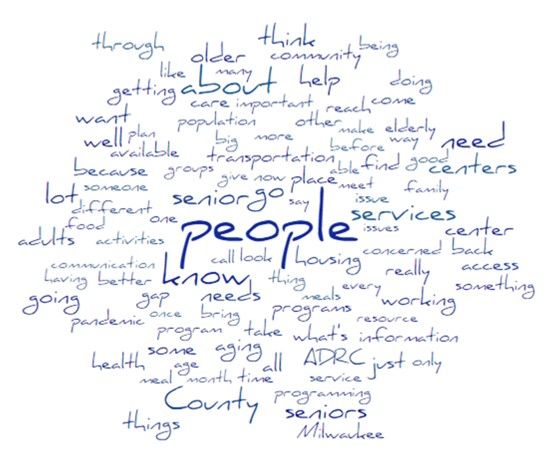 think
through being
older community
like many
getting about help doing
care important reach come
want population other make elderly
well plan big more before way need
available transportation able find good
because groups give now place meet centers
lot someone senior go say issue family
different people services
food one issues center
adults activities call look housing concerned back
communication know thing really access
having better every something
going gap needs meals working
pandemic once bring programs resource
program take what's information
health some aging all ADRC just only
age
meal month time service
County programming
seniors
things Milwaukee